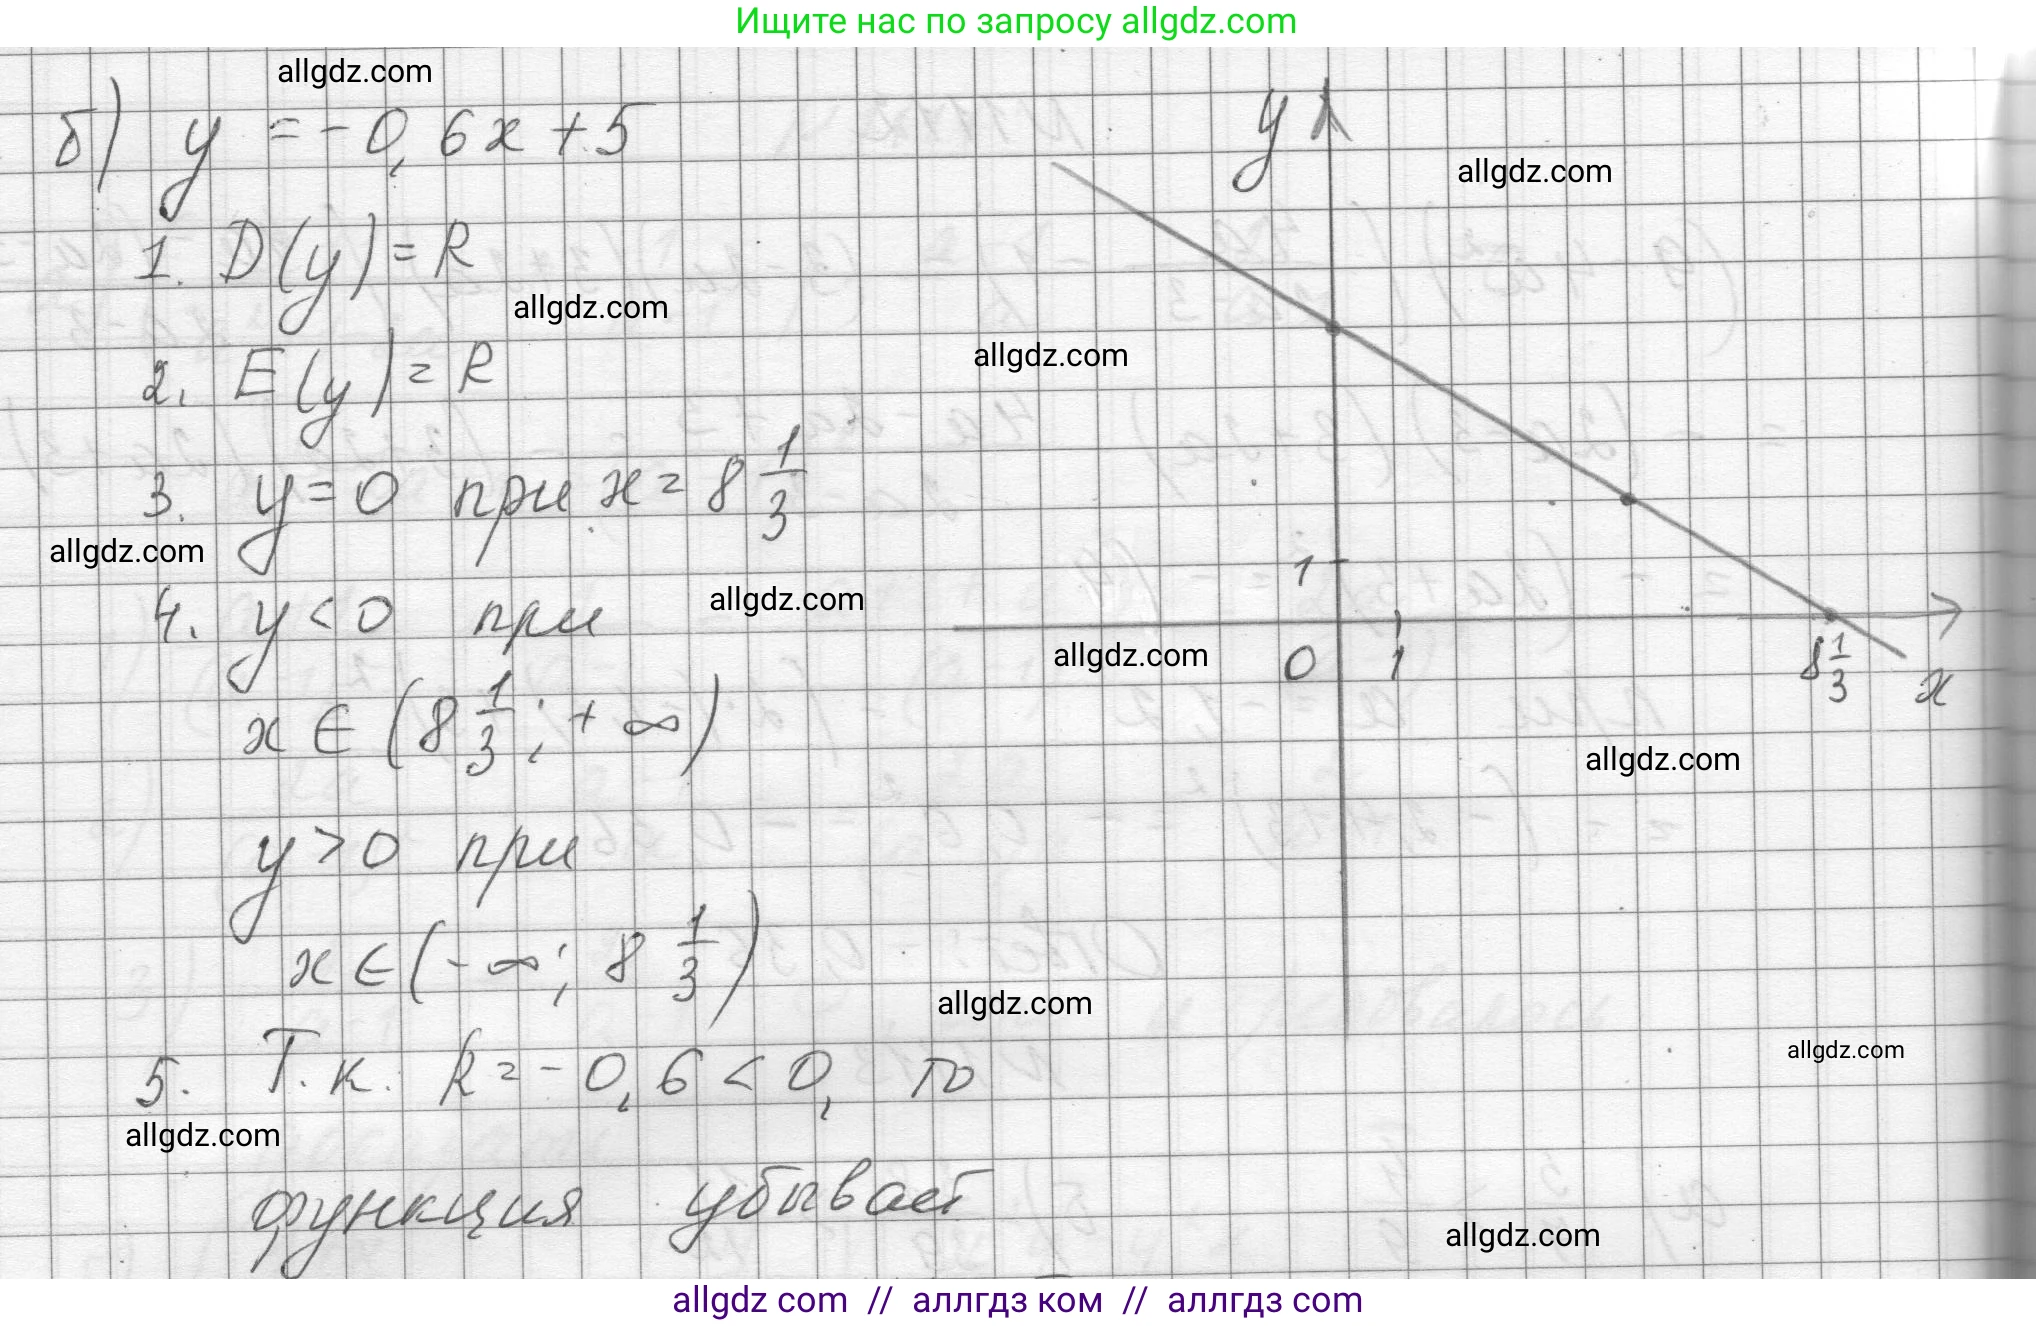 Ищите нас по запросу allgdz.com
allgdz.com
б) y = -0,6x + 5
y
allgdz.com
1. D(y) = R
allgdz.com
2. E(y) = R
allgdz.com
3. y = 0 при x = 8 1/3
allgdz.com
1
4. y < 0 при
allgdz.com
0 1 8 1/3 x
allgdz.com
x ∈ (8 1/3; + ∞)
allgdz.com
y > 0 при
x ∈ (- ∞; 8 1/3)
allgdz.com
allgdz.com
5. Т.к. k = -0,6 < 0, то
allgdz.com
функция убывает
allgdz.com
allgdz com // аллгдз ком // аллгдз com